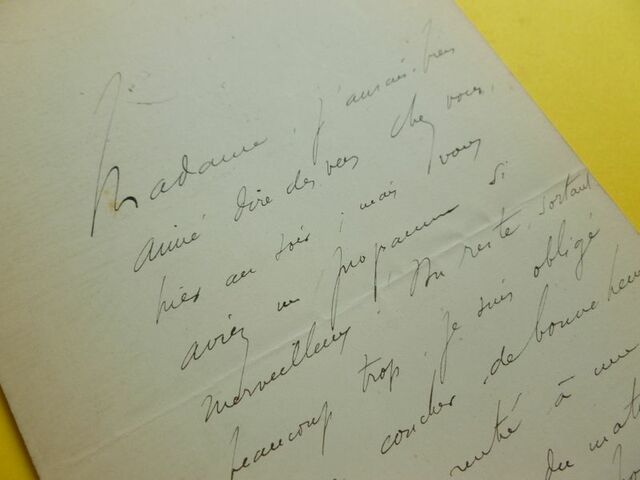 Madame, j'aurais bien
aimé dire des vers chez vous,
hier au soir ; mais vous
aviez un programme si
merveilleux ! Du reste, sortant
beaucoup trop, je suis obligé
coucher de bonne heure
rentré à une
du mat